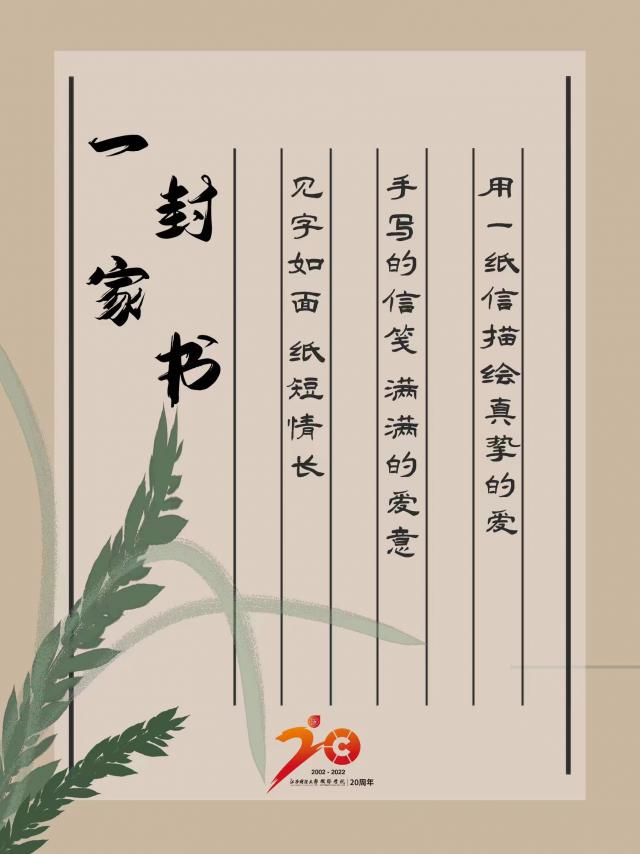 用一纸信描绘真挚的爱
手写的信笺 满满的爱意
见字如面 纸短情长
一封家书
2002 - 2022
20周年